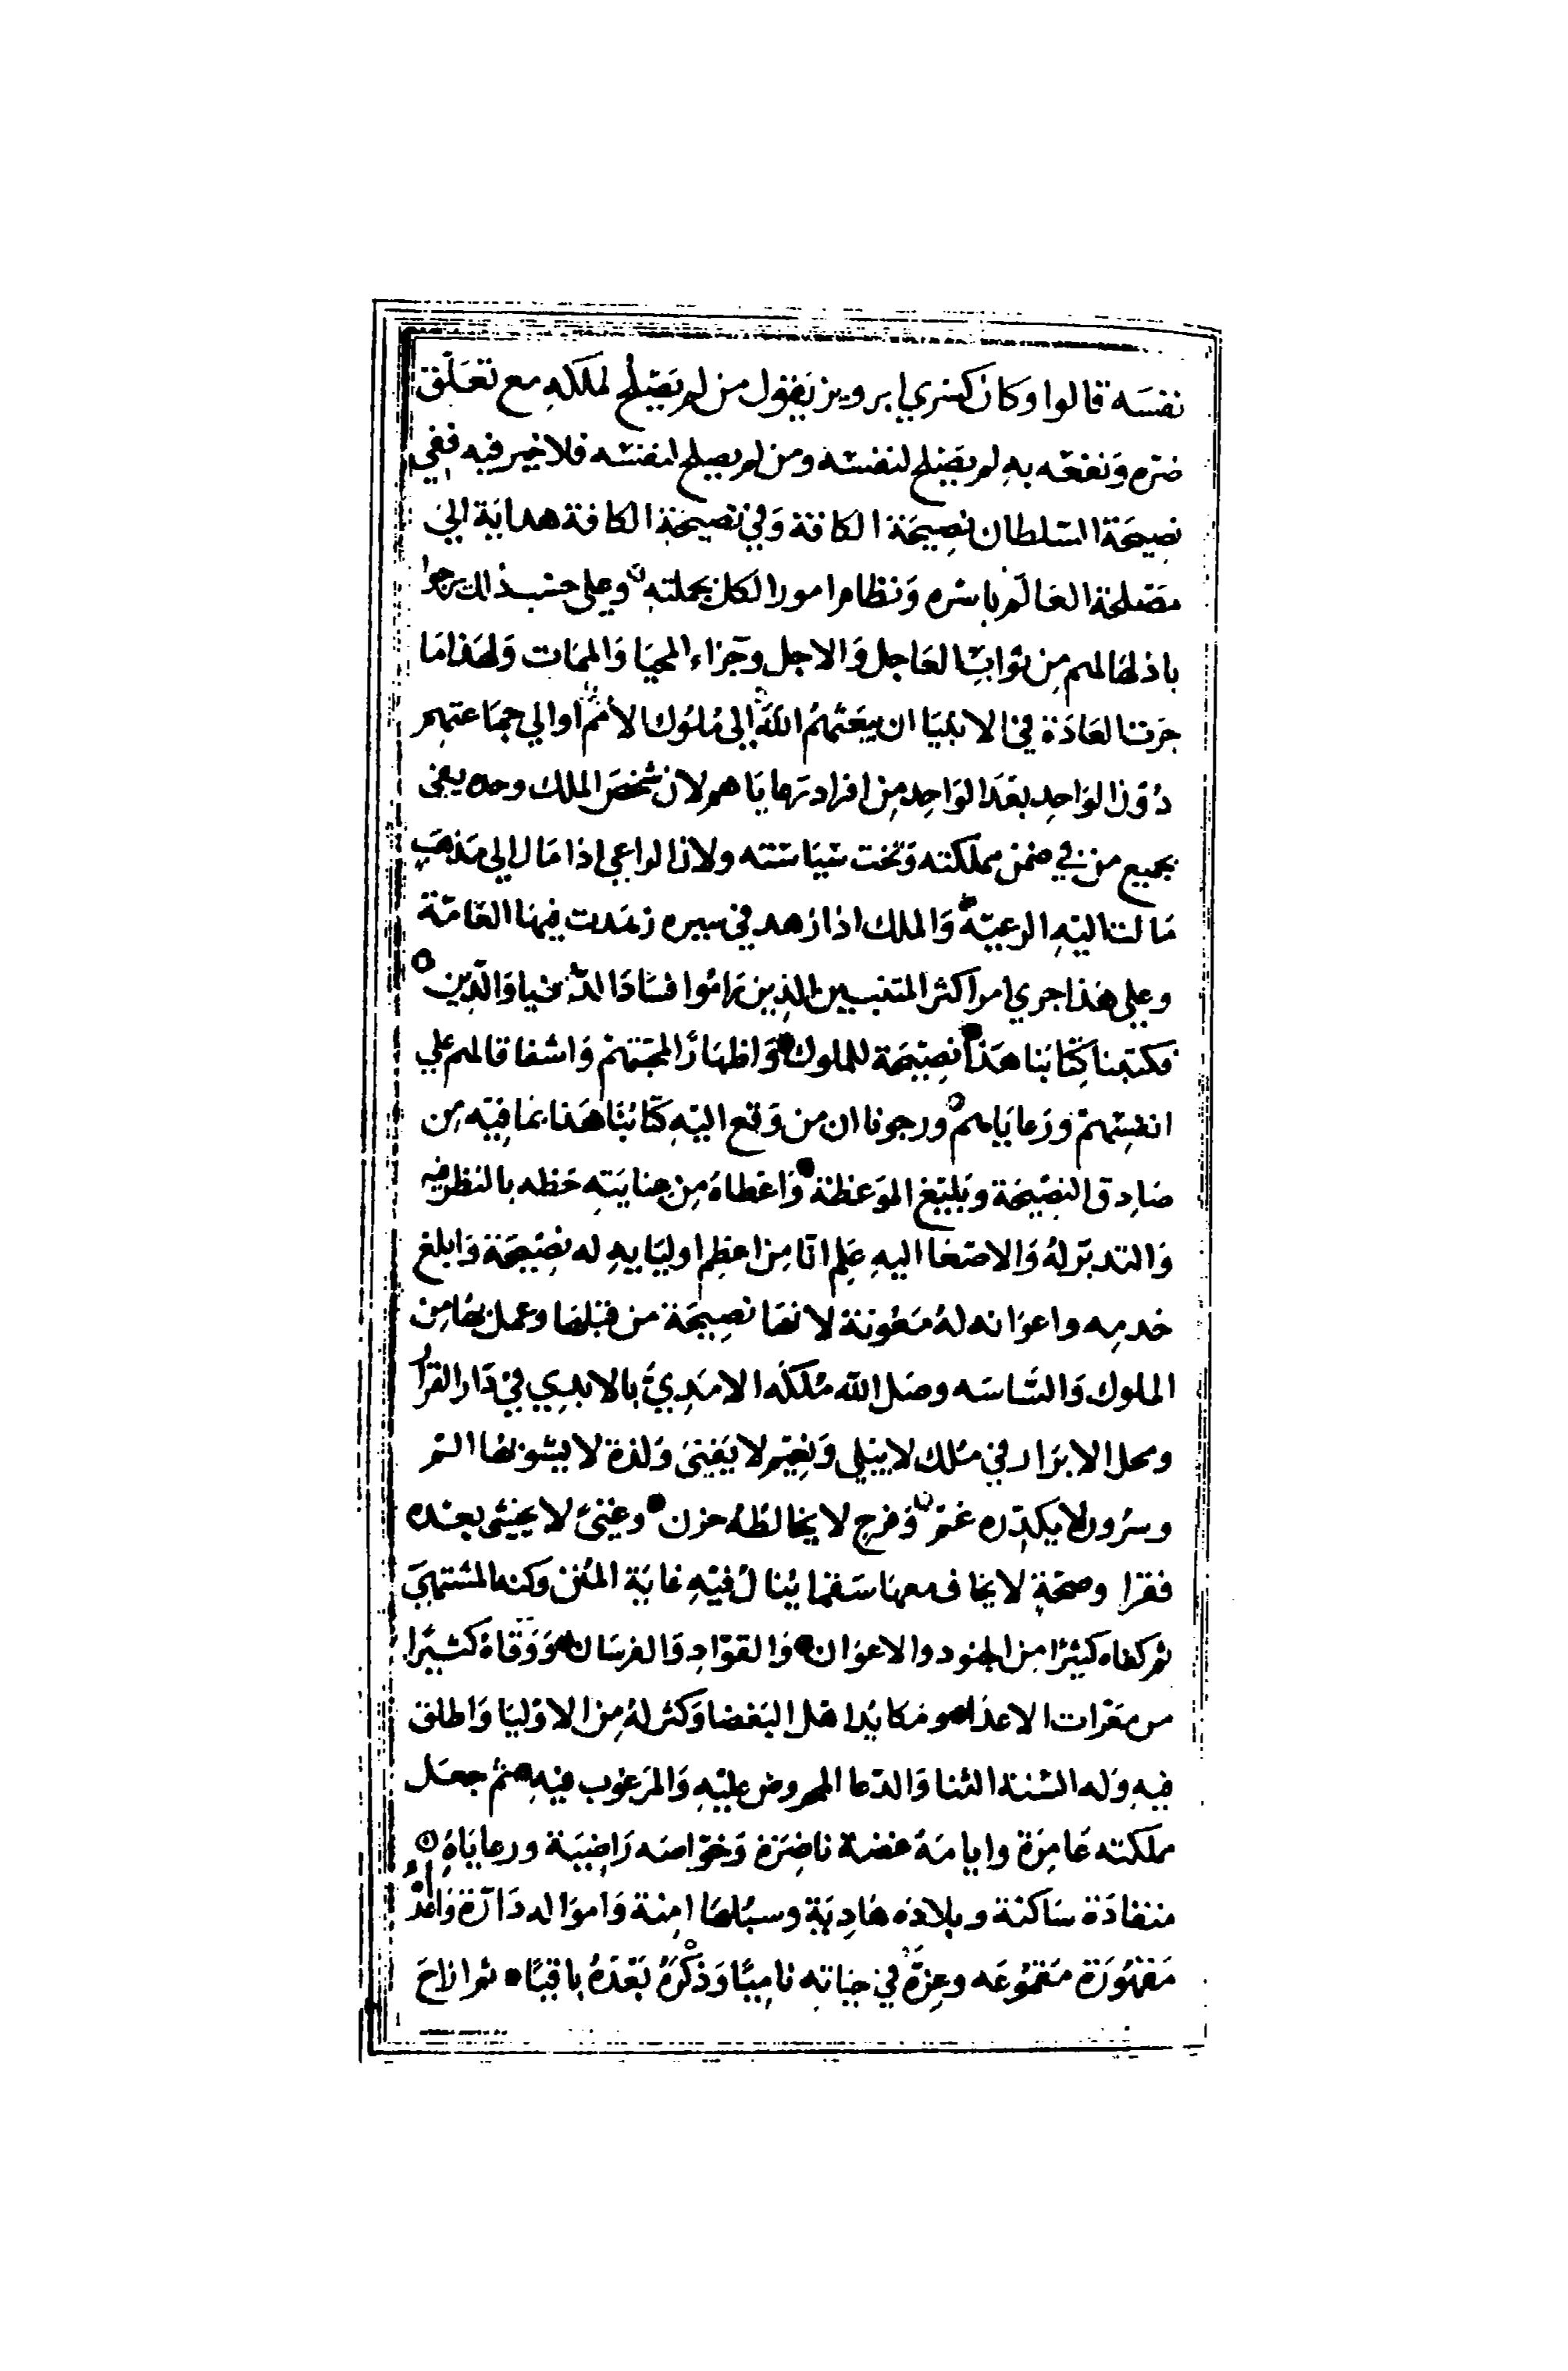 نفسَه قالوا وكان كسري ابرويز يَقول من لم يَصْلح لملكه مع تعَلّق
ضرّه وَنفعَه بهِ لم يصَلح لنفسَه ومن لم يصلح لنفسَه فلا خير فيه ففي
نصِيحَة السّلطان نصِيحَة الكافة وَفي نصيحَة الكافة هدايَة الي
مصَلحَة العَالَم باسَره وَنظام امور الكل بجملته وعلي حسَب ذلك يرجوا
باذلها لهم مِن ثوَاب العَاجل وَالاجل وجَزاء المحيَا وَالممَات وَلهَذا مَا
جَرت العَادَة في الانبيَا ان يبعَثهمُ اللَّه إلى مُلوُك الأممْ او الي جمَاعتهم
دُون الوَاحِد بعَد الوَاحِد مِن افراد رَعايَاهم لان شخصَ الملك وحده يفي
بجميع من في ضمن مملكته وَتحت سَيَاسَته ولان الراعي اذا مَال الي مَذهَبٍ
مَالت اليَهِ الرعيّة وَالملك اذا زهد في سيره زهَدت فيهَا العَامّة
وعلي هَذا جري امر اكثر المتنبيين الذِين رَامُوا فسَادَ الدّنيا وَالدّين
فكتبنا كِتَابَنا هَذا نصِيْحَة للملوك وَاظهَارًا لمحَبّتهمْ وَاشفاقا لهم علي
انفسِهمْ ورَعايَاهم ورجونا ان من وَقع اليَهِ كتَابُنَا هَذا بمَا فيَه مِن
صَادِق النصِيْحَة وبَليَغ الموَعظة وَاعَطاهُ مِن عِنايَتهِ حَظه بالنظر فيه
وَالتدبّر لهُ وَالاصَغا اليهِ عَلِم انّا مِن اعظِم اوليَايهِ له نصِيْحَة وَابلغ
خدمِه واعوَانه لهُ مَعُونة لانهَا نصِيْحَة من قبَلهَا وعمل بهَا مِن
الملوك وَالسَّاسَه وصَل الله مُلكَه الامَدِيَّ بالابدِي في دَار القرَار
ومحل الابرَار في مُلك لا يبَلي وَنعِيْم لا يَفنىَ وَلذة لا يشوَبهَا الم
وسرُور لا يكدّره غمّ وَفرحِ لا يخالطُهُ حزن وغِنىً لا يخشى بعدَه
فقرا وصحّةٍ لا يخاف معهَا سَقما يُنال فيَهِ غايَة المُنى وكنه المشتهيَ
ثم كفاه كثيرًا مِن الجنود والاعوَان وَالقوّادِ وَالفرسَان وَوَقاهُ كثيرًا
من معَرات الاعدَا ومَكايُد اهَل البَغضا وَكثر لهُ مِن الاوَليَا وَاطلق
فيهِ وَله السَنة الثنا وَالدّعا المحروض عليَهِ وَالمرَغوب فيَهِ ثمْ جعَل
مملكته عَامِرَة وايامَهُ غضة ناضِرَة وَخوَاصَه رَاضِيَة ورعايَاهُ
منقادَة سَاكنة وبلادَه هَادِيَةِ وسبُلهَا امِنة وَاموَاله دَارّة وَاعدَاءُ
مَقهوُرَة مَقموُعَه وعِزّهُ في حيَاتهِ نامِيًا وَذكْرَهُ بَعْدَهُ باقيًا ثم ازاحَ